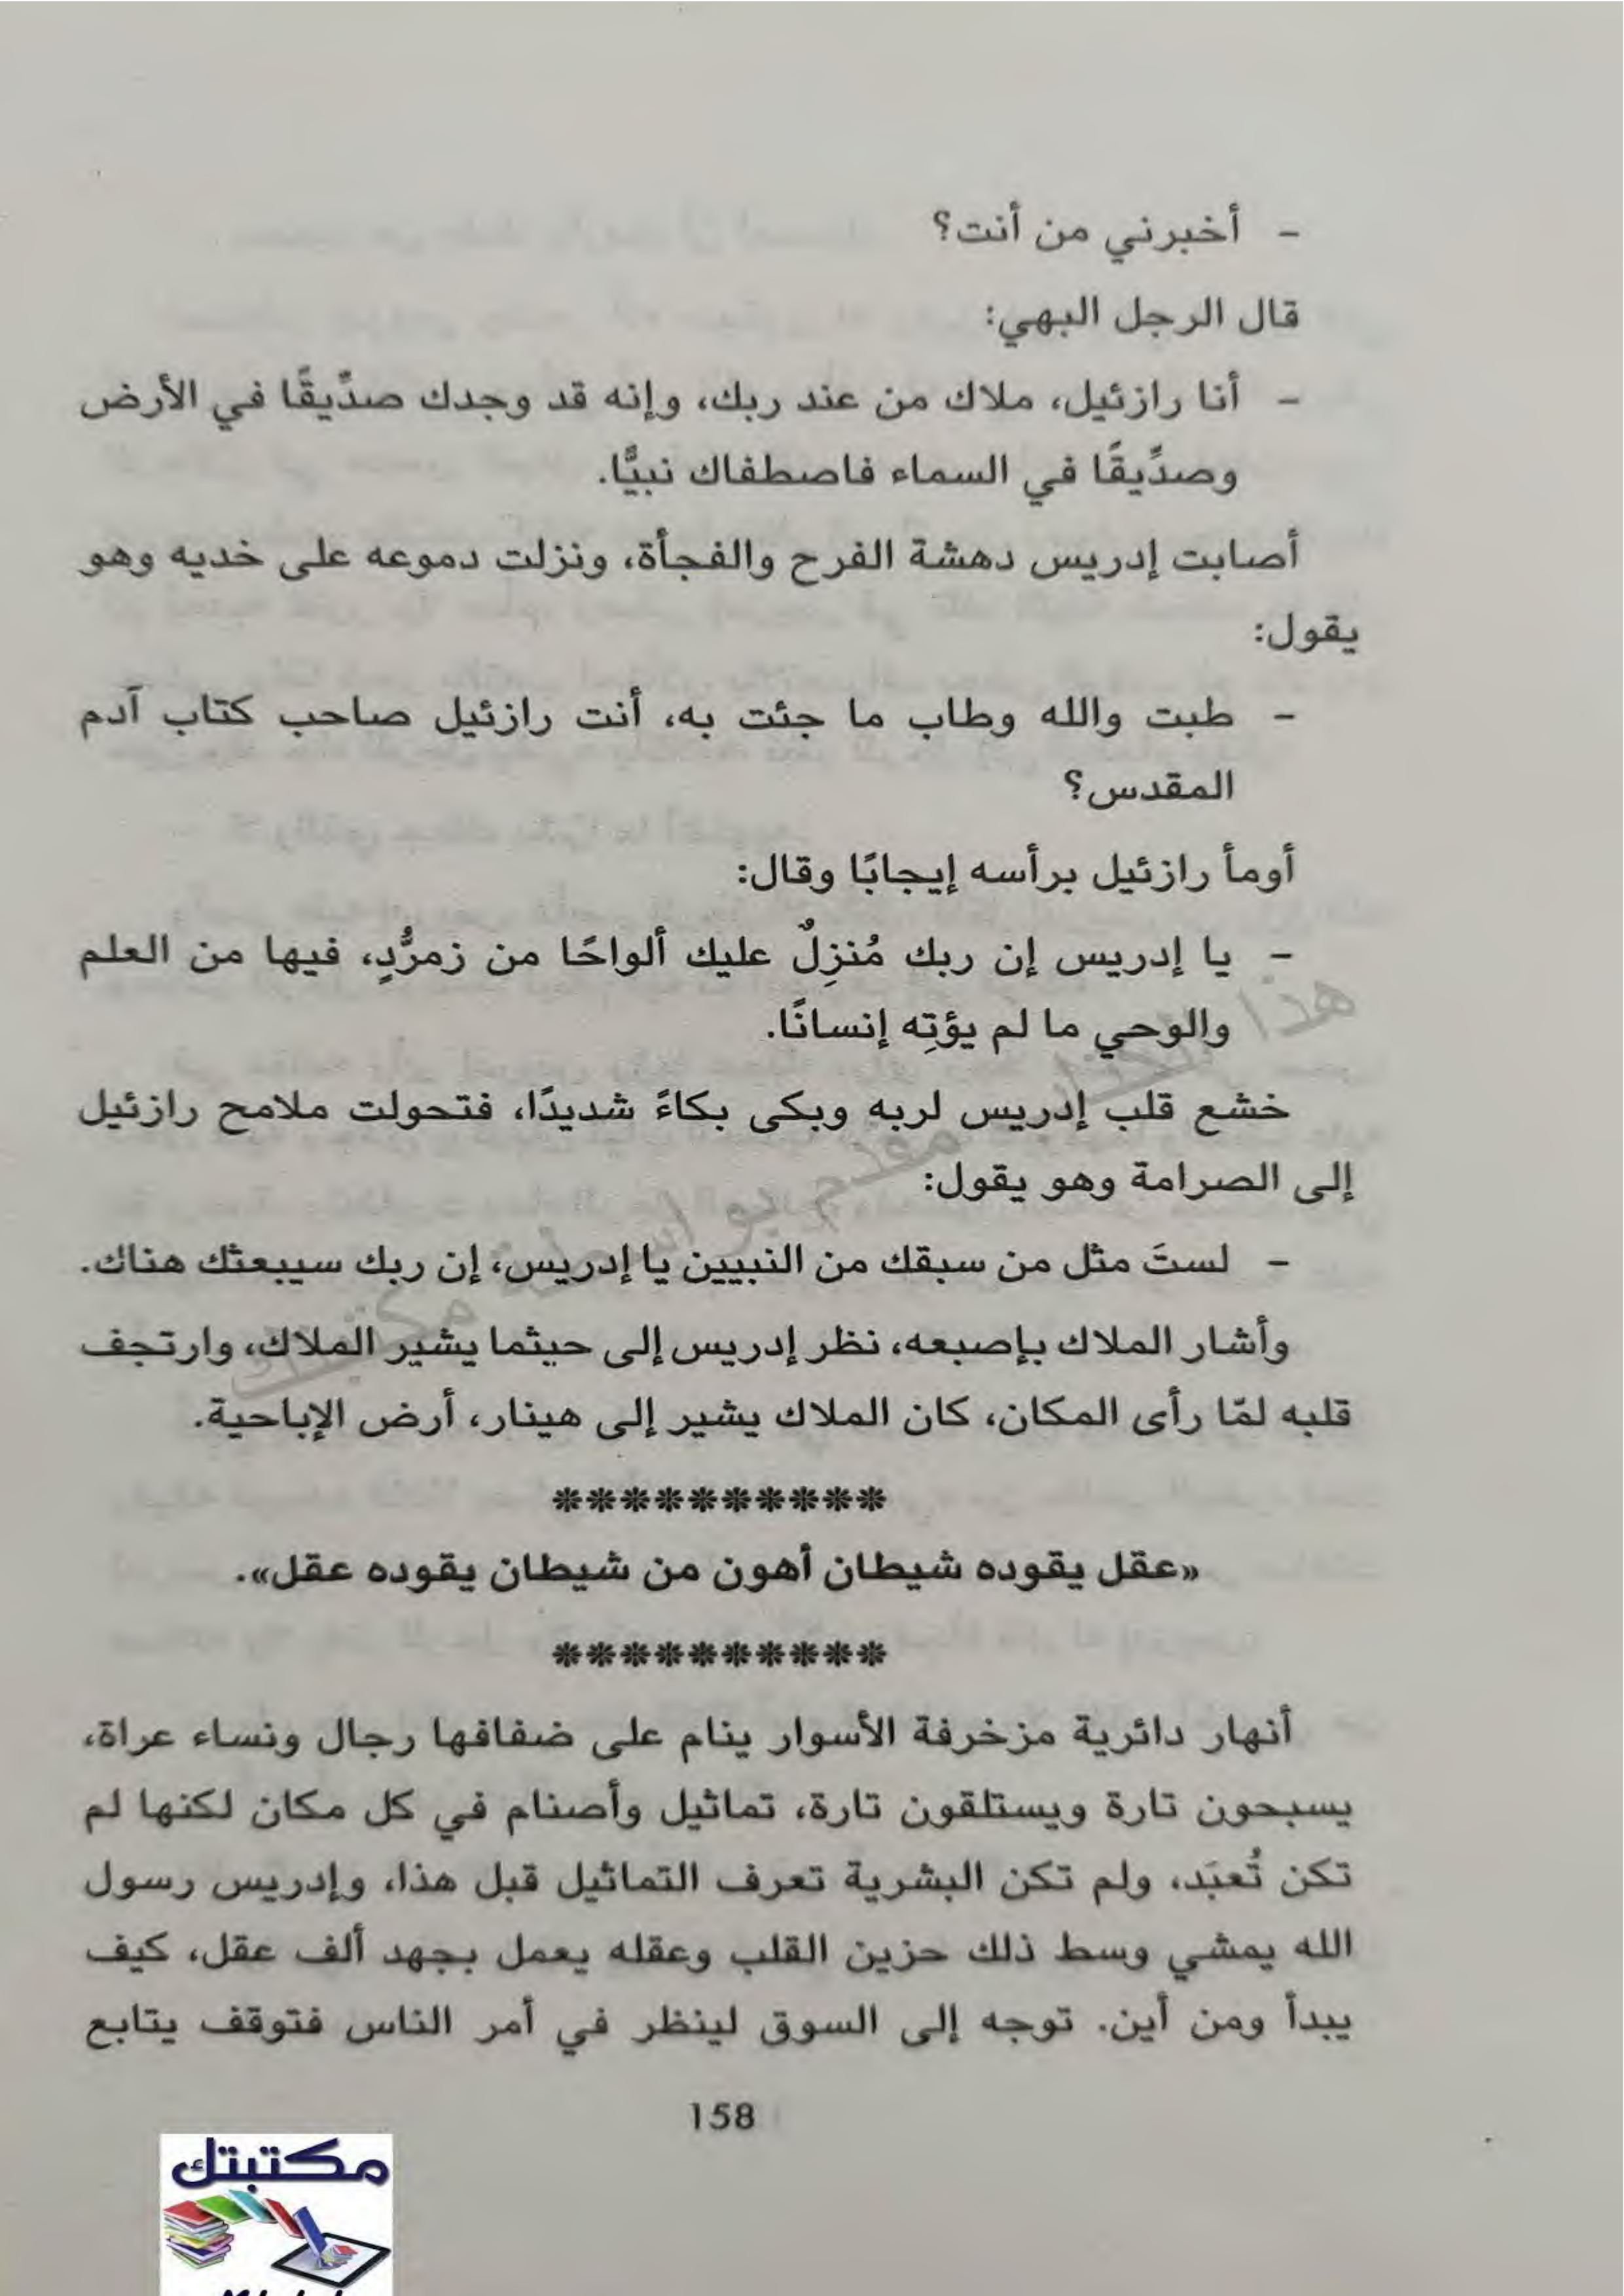 - أخبرني من أنت؟
قال الرجل البهي:
- أنا رازئيل، ملاك من عند ربك، وإنه قد وجدك صدِّيقًا في الأرض
وصدِّيقًا في السماء فاصطفاك نبيًّا.
أصابت إدريس دهشة الفرح والفجأة، ونزلت دموعه على خديه وهو
يقول:
- طبت والله وطاب ما جئت به، أنت رازئيل صاحب كتاب آدم
المقدس؟
أومأ رازئيل برأسه إيجابًا وقال:
- يا إدريس إن ربك مُنزِلٌ عليك ألواحًا من زمرُّدٍ، فيها من العلم
والوحي ما لم يؤتِه إنسانًا.
خشع قلب إدريس لربه وبكى بكاءً شديدًا، فتحولت ملامح رازئيل
إلى الصرامة وهو يقول:
- لستَ مثل من سبقك من النبيين يا إدريس، إن ربك سيبعثك هناك.
وأشار الملاك بإصبعه، نظر إدريس إلى حيثما يشير الملاك، وارتجف
قلبه لمّا رأى المكان، كان الملاك يشير إلى هينار، أرض الإباحية.
**********
«عقل يقوده شيطان أهون من شيطان يقوده عقل».
**********
أنهار دائرية مزخرفة الأسوار ينام على ضفافها رجال ونساء عراة،
يسبحون تارة ويستلقون تارة، تماثيل وأصنام في كل مكان لكنها لم
تكن تُعبَد، ولم تكن البشرية تعرف التماثيل قبل هذا، وإدريس رسول
الله يمشي وسط ذلك حزين القلب وعقله يعمل بجهد ألف عقل، كيف
يبدأ ومن أين. توجه إلى السوق لينظر في أمر الناس فتوقف يتابع
158
هذا الكتاب مقدم بواسطة مكتبتك
مكتبتك